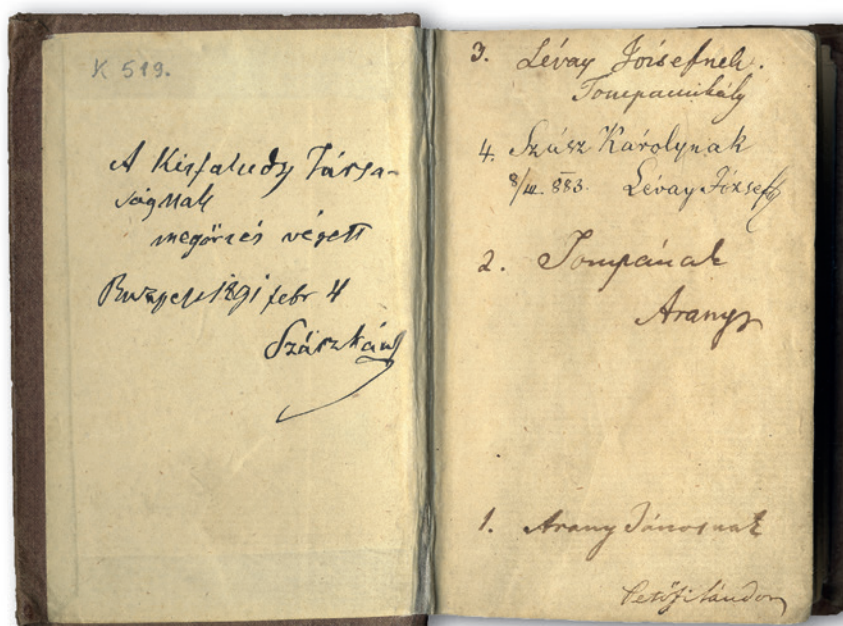 K 519.
A Kisfaludy Társa-
ságnak
megőrzés végett
Budapest 1891 febr 4
Szász Károly
3. Lévay Józsefnek.
Tompa Mihály
4. Szász Károlynak
8/III. 883. Lévay József
2. Tompának
Arany
1. Arany Jánosnak
Petőfi Sándor